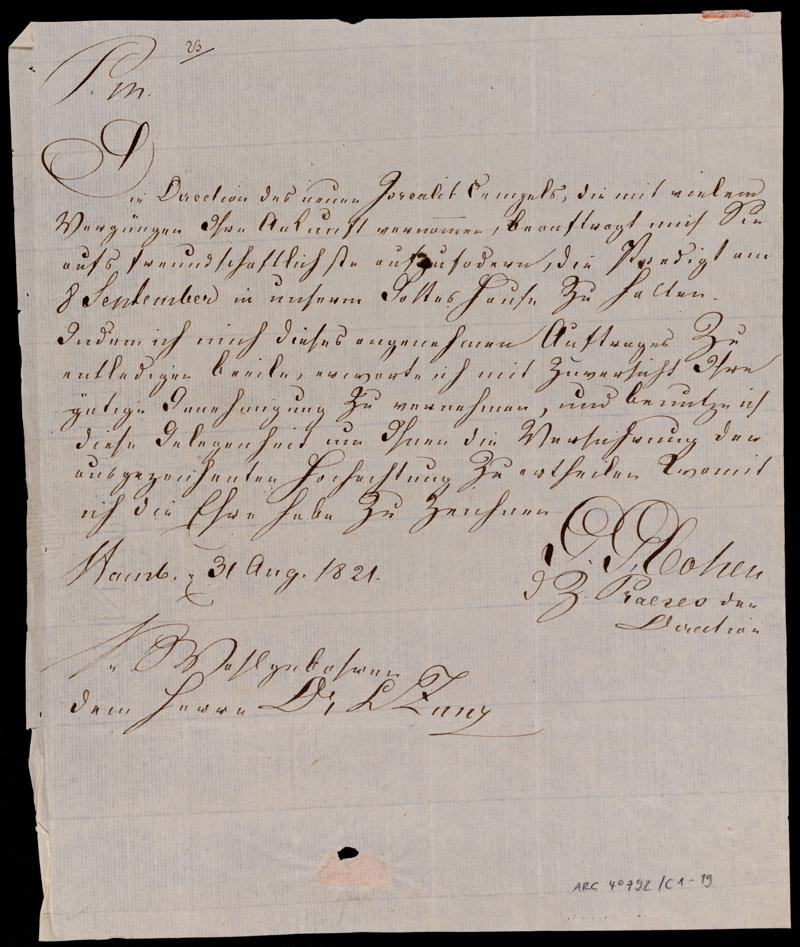 23
P. M.
Die Direction des neuen Israelit Tempels, die mit vielem
Vergnügen Ihre Ankunft vernommen, beauftragt mich Sie
aufs freundschaftlichste aufzufodern, die Predigt am
8 September in unserm Gotteshause zu halten.
Indem ich mich dieses angenehmen Auftrages zu
entledigen beeile, erwarte ich mit Zuversicht Ihre
gütige Genehmigung zu vernehmen, und benutze ich
diese Gelegenheit um Ihnen die Versichrung der
ausgezeichneten Hochachtung zu ertheilen womit
ich die Ehre habe zu zeichnen
Hamb. 31 Aug. 1821.
Cohen
d. Z. Praeses der
Direction
Sr Wohlgebohren
dem Herrn Dr L Zunz
ARC 4° 792/C1-19